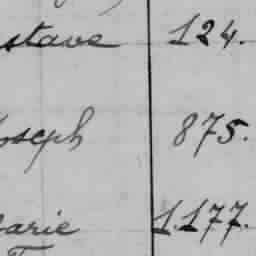 stave 124.
Joseph 875.
arie 1.177.